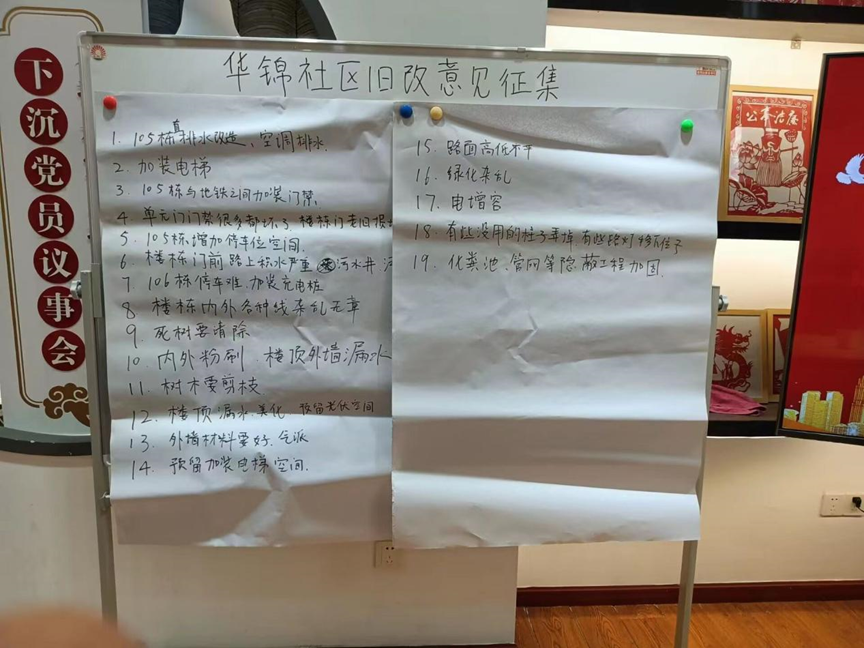 下沉党员议事会
华锦社区旧改意见征集
1. 105栋真排水改造、空调排水.
2. 加装电梯
3. 105栋与地铁之间加装门禁.
4 单元门门禁很多都坏了、楼栋门老旧损
5 105栋增加停车位空间.
6 楼栋门前路上积水严重 污水井
7 106栋停车难.加装充电桩
8 楼栋内外各种线杂乱无章
9. 死树要清除
10. 内外粉刷 楼顶外墙漏水
11. 树木要剪枝
12. 楼顶漏水.美化 预留光伏空间
13. 外墙材料要好、气派
14. 预留加装电梯空间.
15. 路面高低不平
16. 绿化杂乱
17. 电增容
18. 有些没用的柱子弄掉 有些路灯
19. 化粪池、管网等隐蔽工程加固.
公事治症